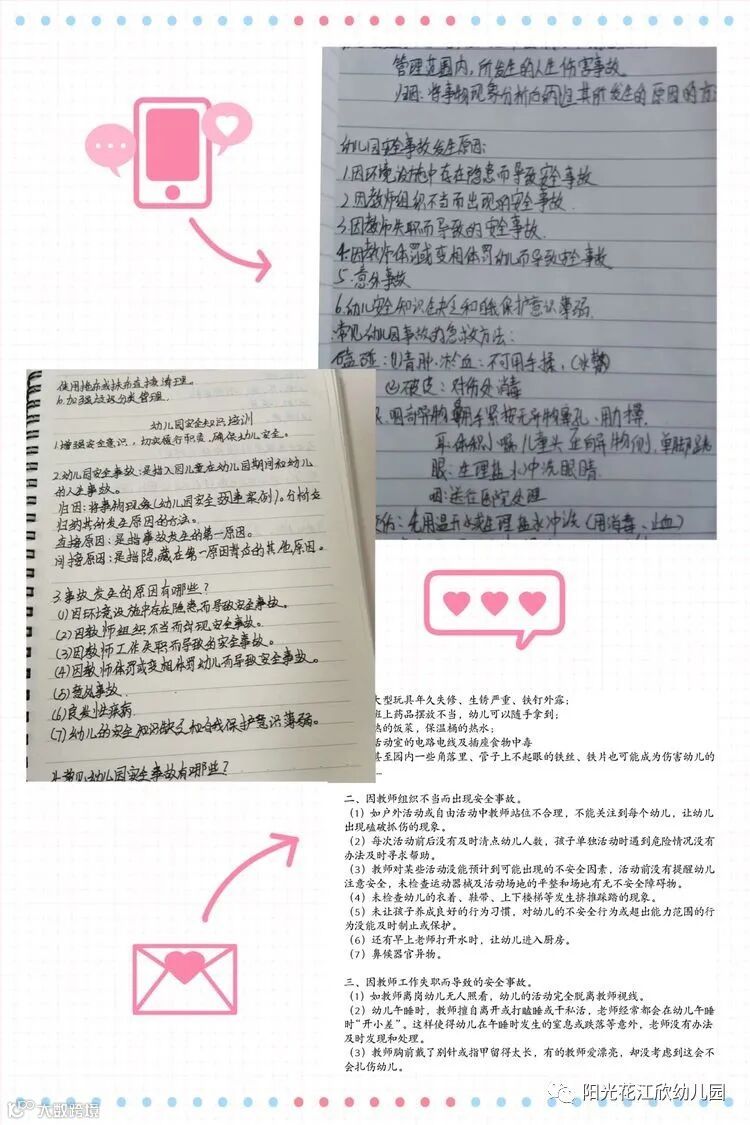 管理范围内，所发生的人生伤害事故。
归因：将事物现象分析
其所发生的原因的方
幼儿园安全事故发生原因：
1.因环境设施中存在隐患而导致安全事故
2.因教师组织不当而出现的安全事故.
3.因教师失职而导致的安全事故.
4.因教师体罚或变相体罚幼儿而导致安全事故
5.意外事故
6.幼儿安全知识缺乏和自我保护意识薄弱.
常见幼儿园事故的急救方法：
磕碰：(1)青肿、淤血：不可用手揉，(冰敷)
②破皮：对伤处消毒
眼：生理盐水冲洗眼睛
咽：送往医院处理
先用温开水或生理盐水冲洗（用消毒、止血）
使用拖布或抹布直接清理。
6.加强垃圾分类管理.
幼儿园安全知识培训
1.增强安全意识，切实履行职责，确保幼儿安全。
2.幼儿园安全事故：是指入园儿童在幼儿园期间和幼儿
的人生事故。
归因：将事物现象（幼儿园安全事案例）。分析并
归纳其的发生原因的方法。
直接原因：是指事故发生的第一原因。
间接原因：是指隐藏在第一原因背后的其他原因。
3.事故发生的原因有哪些？
(1)因环境设施中存在隐患而导致安全事故。
(2)因教师组织不当而出现安全事故。
(3)因教师工作失职而导致的安全事故。
(4)因教师体罚或变相体罚幼儿而导致安全事故。
(5)意外事故.
(6)良生性疾病.
(7)幼儿的安全知识缺乏和自我保护意识薄弱。
4.常见幼儿园安全事故有哪些？
大型玩具年久失修、生锈严重、铁钉外露；
班上药品摆放不当，幼儿可以随手拿到；
热的饭菜，保温桶的热水；
活动室的电路电线及插座食物中毒
甚至园内一些角落里、管子上不起眼的铁丝、铁片也可能成为伤害幼儿的
二、因教师组织不当而出现安全事故。
（1）如户外活动或自由活动中教师站位不合理，不能关注到每个幼儿，让幼儿
出现磕破抓伤的现象。
（2）每次活动前后没有及时清点幼儿人数，孩子单独活动时遇到危险情况没有
办法及时寻求帮助。
（3）教师对某些活动没能预计到可能出现的不安全因素，活动前没有提醒幼儿
注意安全，未检查运动器械及活动场地的平整和场地有无不安全障碍物。
（4）未检查幼儿的衣着、鞋带、上下楼梯等发生挤推踩踏的现象。
（5）未让孩子养成良好的行为习惯，对幼儿的不安全行为或超出能力范围的行
为没能及时制止或保护。
（6）还有早上老师打开水时，让幼儿进入厨房。
（7）鼻候器官异物。
三、因教师工作失职而导致的安全事故。
（1）如教师离岗幼儿无人照看，幼儿的活动完全脱离教师视线。
（2）幼儿午睡时，教师擅自离开或打瞌睡或干私活，老师经常都会在幼儿午睡
时“开小差”。这样使得幼儿在午睡时发生的窒息或跌落等意外，老师没有办法
及时发现和处理。
（3）教师胸前戴了别针或指甲留得太长，有的教师爱漂亮，却没考虑到这会不
会扎伤幼儿。
阳光花江欣幼儿园
大数跨境